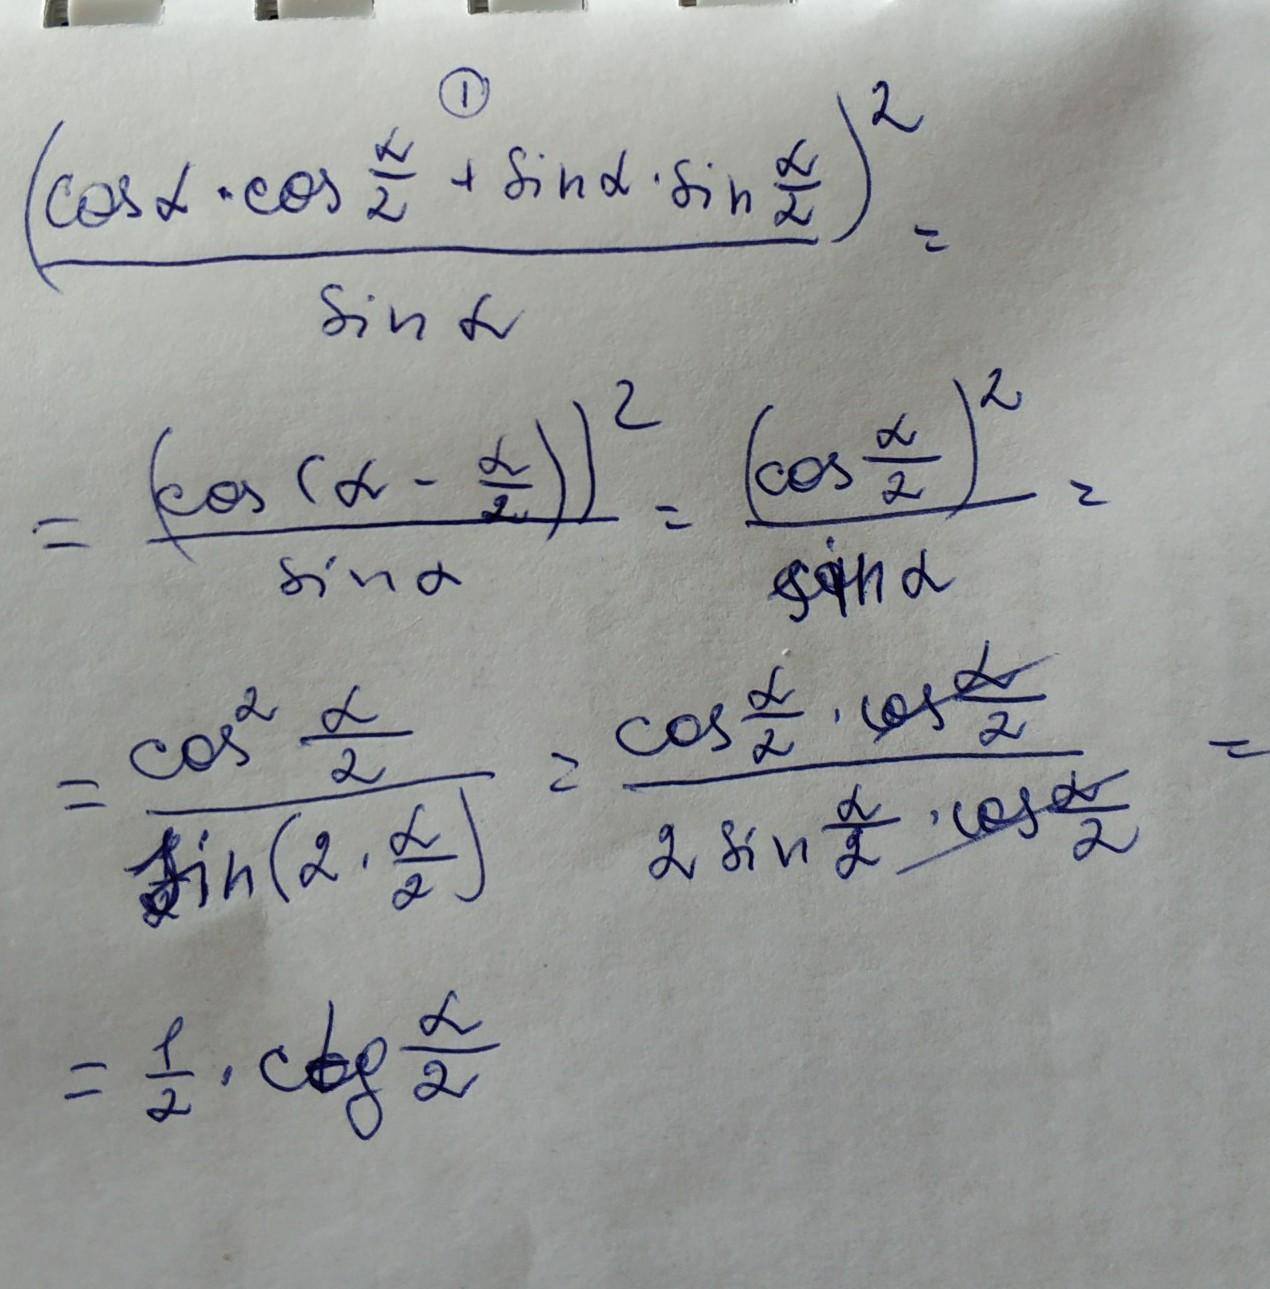 ①
(cos α · cos α/2 + sin α · sin α/2)² / sin α =
= (cos (α - α/2))² / sin α = (cos α/2)² / sin α =
= cos² α/2 / sin(2 · α/2) = cos α/2 · cos α/2 / 2 sin α/2 · cos α/2 =
= 1/2 · ctg α/2